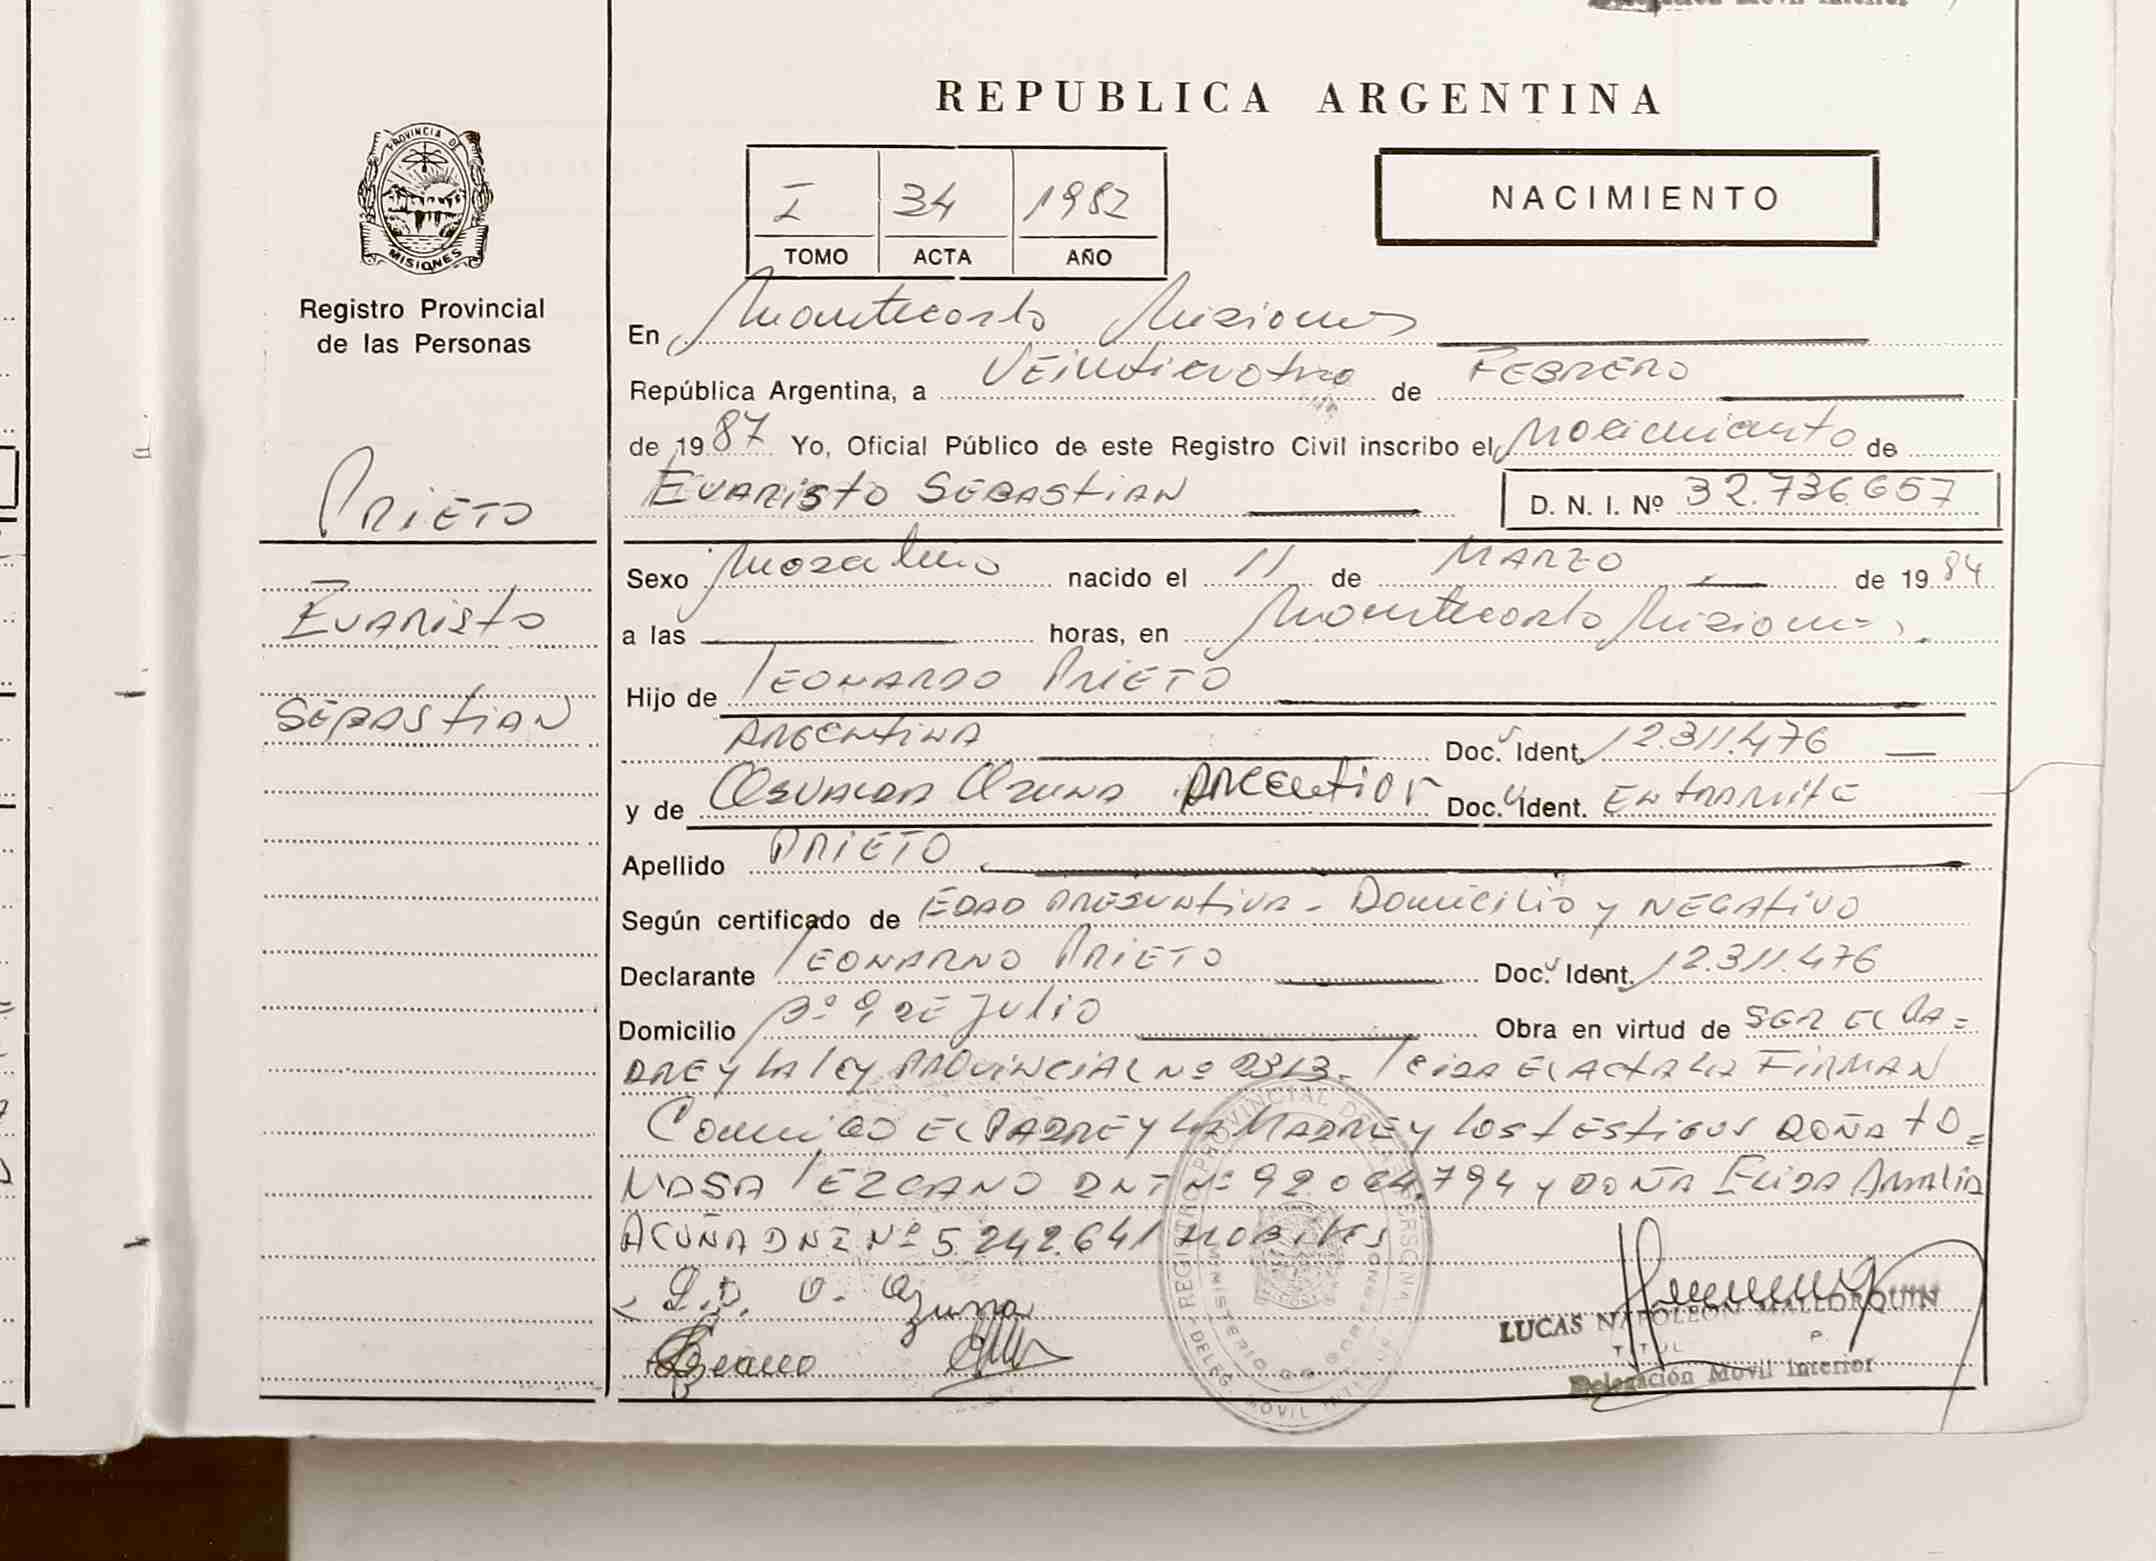 Delegación Movil Interior
REPUBLICA ARGENTINA
PROVINCIA DE
MISIONES
Registro Provincial
de las Personas
I 34 1982
TOMO ACTA AÑO
NACIMIENTO
En Montecarlo Misiones
República Argentina, a Veinticuatro de FEBRERO
de 1987 Yo, Oficial Público de este Registro Civil inscribo el Nacimiento de
PRIETO
EVARISTO SEBASTIAN D. N. I. Nº 32.736.657
Sexo Masculino nacido el 11 de MARZO de 1984
EVARISTO
a las horas, en Montecarlo Misiones.
SEBASTIAN
Hijo de LEONARDO PRIETO
ARGENTINA Doc. Ident. 12.311.476
y de OSVALDA OZUNA ARGENTINA Doc. Ident. EN TRAMITE
Apellido PRIETO
Según certificado de EDAD PRESUNTIVA - DOMICILIO Y NEGATIVO
Declarante LEONARDO PRIETO Doc. Ident. 12.311.476
Domicilio Bº 9 DE JULIO Obra en virtud de SER EL PA=
DRE Y LA LEY PROVINCIAL Nº 2313- LEIDA EL ACTA LA FIRMAN
COMMIGO EL PADRE Y LA MADRE Y LOS TESTIGOS DOÑA TO=
MASA LEZCANO DNI Nº 92.064.794 Y DOÑA ELIDA AMALIA
ACUÑA DNI Nº 5.242.641 HABILES
L.P. O. Ozuna
LUCAS NAPOLEON MALLORQUIN
TITUL
Delegación Movil Interior
REGISTRO PROVINCIAL DE LAS PERSONAS
MINISTERIO DE GOBIERNO
DELEG. MOVIL INTERIOR